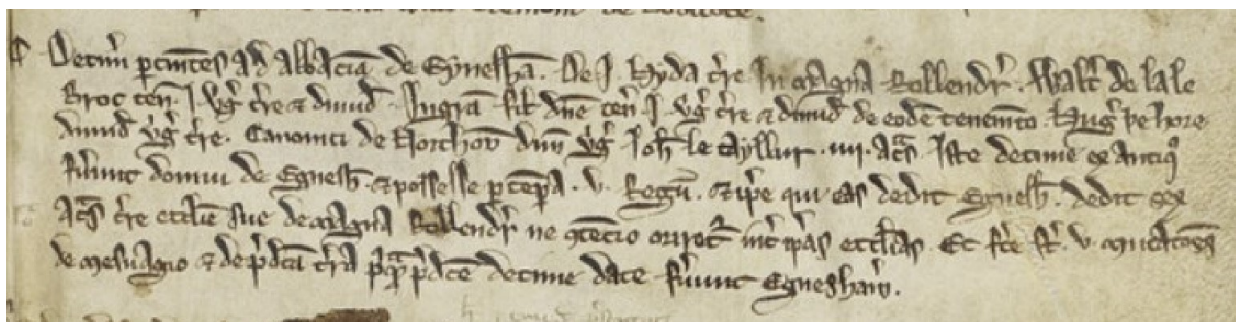 Decim̃ ꝑtinẽtes ad abbaciã de Eyneshã. De .I. hyda t̃re In magna Rollendr̃. Walt̃ de la le
Broc teñ .I. v̾g̾ t̃re ⁊ dimid̃. Ingrã fil̃ dñe teñ .I. v̾g̾ t̃re ⁊ dimid̃ de eodẽ tenem̃to. Hug̾ hore
dimid̃ v̾g̾ t̃re. Canonici de Northoṽ dim̃ v̾g̾ Joh̃ le tayllur .iiii. ac̃s Iste decime ex antiqͦ
fũnt domui de Egnesh̃. ⁊ possesse ꝑ tẽpa .v. Regũ. ⁊ ip̃e qui eas dedit Egnesh̃. dedit sex
ac̃s t̃re ecclẽ sue de magna Rollendr̃ ne ꝯtẽcio oriret̃ int̃ ip̃as ecclĩas. Et fc̃e st̃ .v. mutac̃oes
de mesuagio ⁊ de p̃dcã t̃ra p̃dc̃e decime date fũnt Egnesham̃.